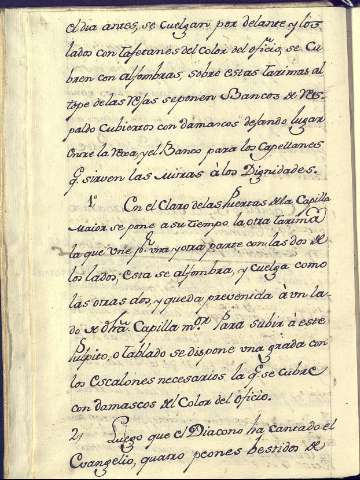 el dia antes, se cuelgan por delante y los
lados con tafetanes del color del oficio, se Cu
bren con alfombras, sobre estas tarimas al
tope de las Rejas se ponen Bancos de Res-
paldo Cubiertos con damascos dejando lugar
entre la Rexa, y el Banco para los Capellanes
q.e sirven las Mitras à los Dignidades.
1.º En el Claro de las Puertas de la Capilla
Maior se pone a su tiempo la otra tarima
la que Vne p.r vna y otra parte con las dos de
los lados, esta se alfombra, y cuelga como
las otras dos, y queda prevenida à vn la-
do de dha. Capilla m.or Para subir à este
Pulpito, o tablado se dispone una grada con
los Escalones necesarios la q.e se cubre
con damascos del Color del oficio.
2, Luego que el Diacono ha cantado el
Evangelio, quatro peones bestidos de